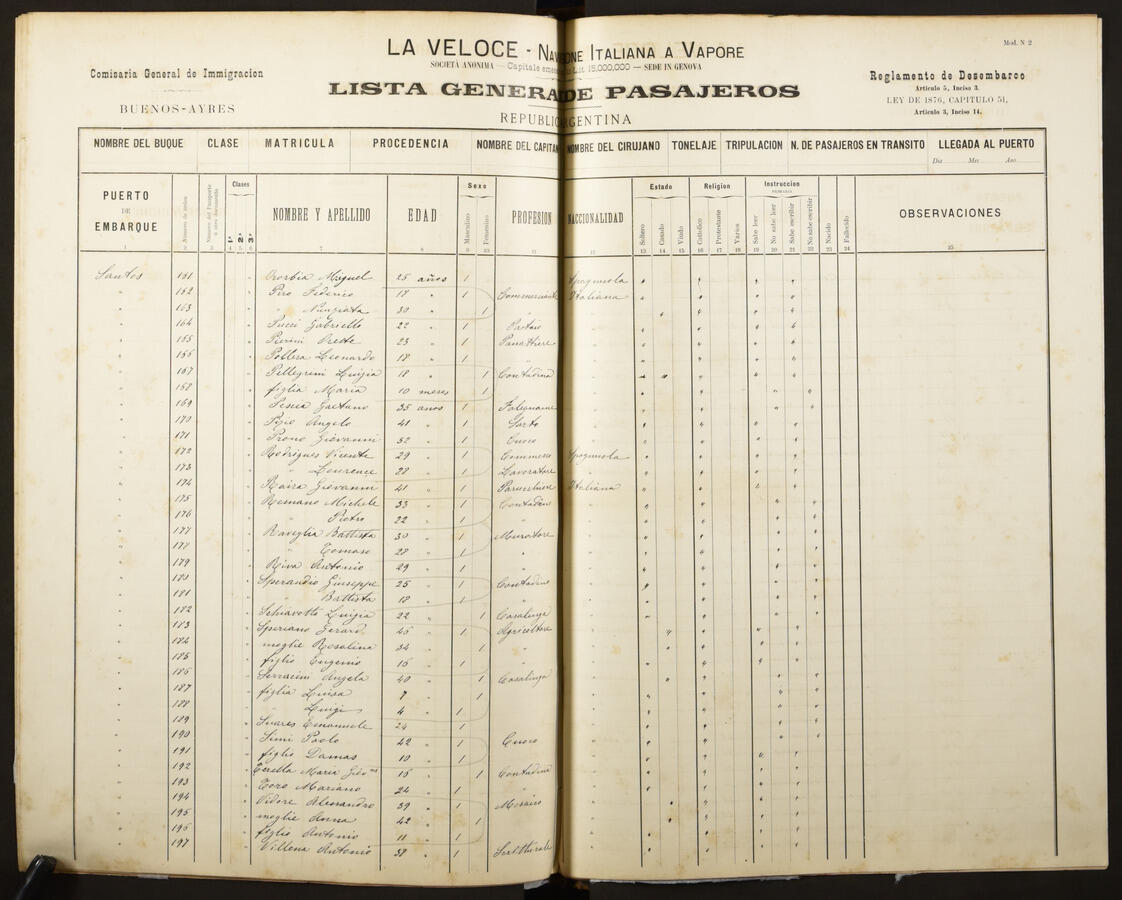 LA VELOCE - NAV ONE ITALIANA A VAPORE
Mod. N 2
SOCIETÀ ANONIMA — Capitale Lit. 15,000,000 — SEDE IN GENOVA
Comisaria General de Immigracion
Reglamento de Desembarco
LISTA GENERA DE PASAJEROS
Articulo 5, Inciso 3.
BUENOS-AYRES
LEY DE 1876, CAPITULO 51,
REPUBLIC GENTINA
Articulo 3, Inciso 14.
NOMBRE DEL BUQUE CLASE MATRICULA PROCEDENCIA NOMBRE DEL CAPITAN NOMBRE DEL CIRUJANO TONELAJE TRIPULACION N. DE PASAJEROS EN TRANSITO LLEGADA AL PUERTO
Dia Mes Ano
PUERTO DE EMBARQUE Clases 1ª 2ª 3ª NOMBRE Y APELLIDO EDAD Sexo Masculino Femenino PROFESION NACCIONALIDAD Estado Soltero Casado Viudo Religion Catolico Protestante Varios Instruccion PRIMARIA Sabe leer No sabe leer Sabe escribir No sabe escribir Nacido Fallecido OBSERVACIONES
1 2 3 4 5 6 7 8 9 10 11 12 13 14 15 16 17 18 19 20 21 22 23 24 25
Santos 161 " Miguel 25 años 1 Spagnuola " " " "
" 162 " Piro Federico 18 " 1 Commerciante Italiana " " " "
" 163 " " Nunziata 30 " 1 " " " "
" 164 " Pucci Gabriello 22 " 1 " " " "
" 165 " Pierini Oreste 23 " 1 Panattiere " " " "
" 166 " Pollera Leonardo 18 " 1 " " " " "
" 167 " Pellegrini Luigia 18 " 1 Contadina " " " " "
" 168 " figlia Maria 10 meses 1 " " " "
" 169 " Gaetano 35 anos 1 Falegname " " " "
" 170 " Angelo 41 " 1 Sarto " " " "
" 171 " Prono Giovanni 32 " 1 Cuoco " " " "
" 172 " Rodrigues Vicente 29 " 1 Commercio Spagnuola " " " "
" 173 " " Lourence 28 " 1 Lavoratore " " " " "
" 174 " Raira Giovanni 41 " 1 Parucchiere Italiana " " " "
" 175 " Romano Michele 33 " 1 Contadino " " " "
" 176 " " Pietro 22 " 1 " " " " "
" 177 " Raviglia Battista 30 " 1 Muratore " " " "
" 178 " " Tomaso 28 " 1 " " " " "
" 179 " Riva Antonio 29 " 1 " " " " "
" 180 " Sperandio Giuseppe 25 " 1 Contadino " " " "
" 181 " " Battista 18 " 1 " " " " "
" 182 " Schiavotti Luigia 22 " 1 Casalinga " " " "
" 183 " Speriano Gerard 45 " 1 Agricoltore " " " "
" 184 " moglie Rosalina 34 " 1 " " " " "
" 185 " figlio Eugenio 16 " 1 " " " "
" 186 " Serracini Angela 40 " 1 Casalinga " " " "
" 187 " figlia Luisa 7 " 1 " " " "
" 188 " " Luigi 4 " 1 " " " "
" 189 " Suares Emanuele 24 " 1 " " " "
" 190 " Simi Paolo 42 " 1 Cuoco " " " "
" 191 " figlio Damas 10 " 1 " " " "
" 192 " Teretta Maria 16 " 1 Contadina " " " "
" 193 " Toro Mariano 24 " 1 " " " " "
" 194 " Vidore Alessandro 39 " 1 " " " "
" 195 " moglie Anna 42 " 1 " " " "
" 196 " figlio Antonio 11 " 1 " " " "
" 197 " Villena Antonio 38 " 1 " " " "